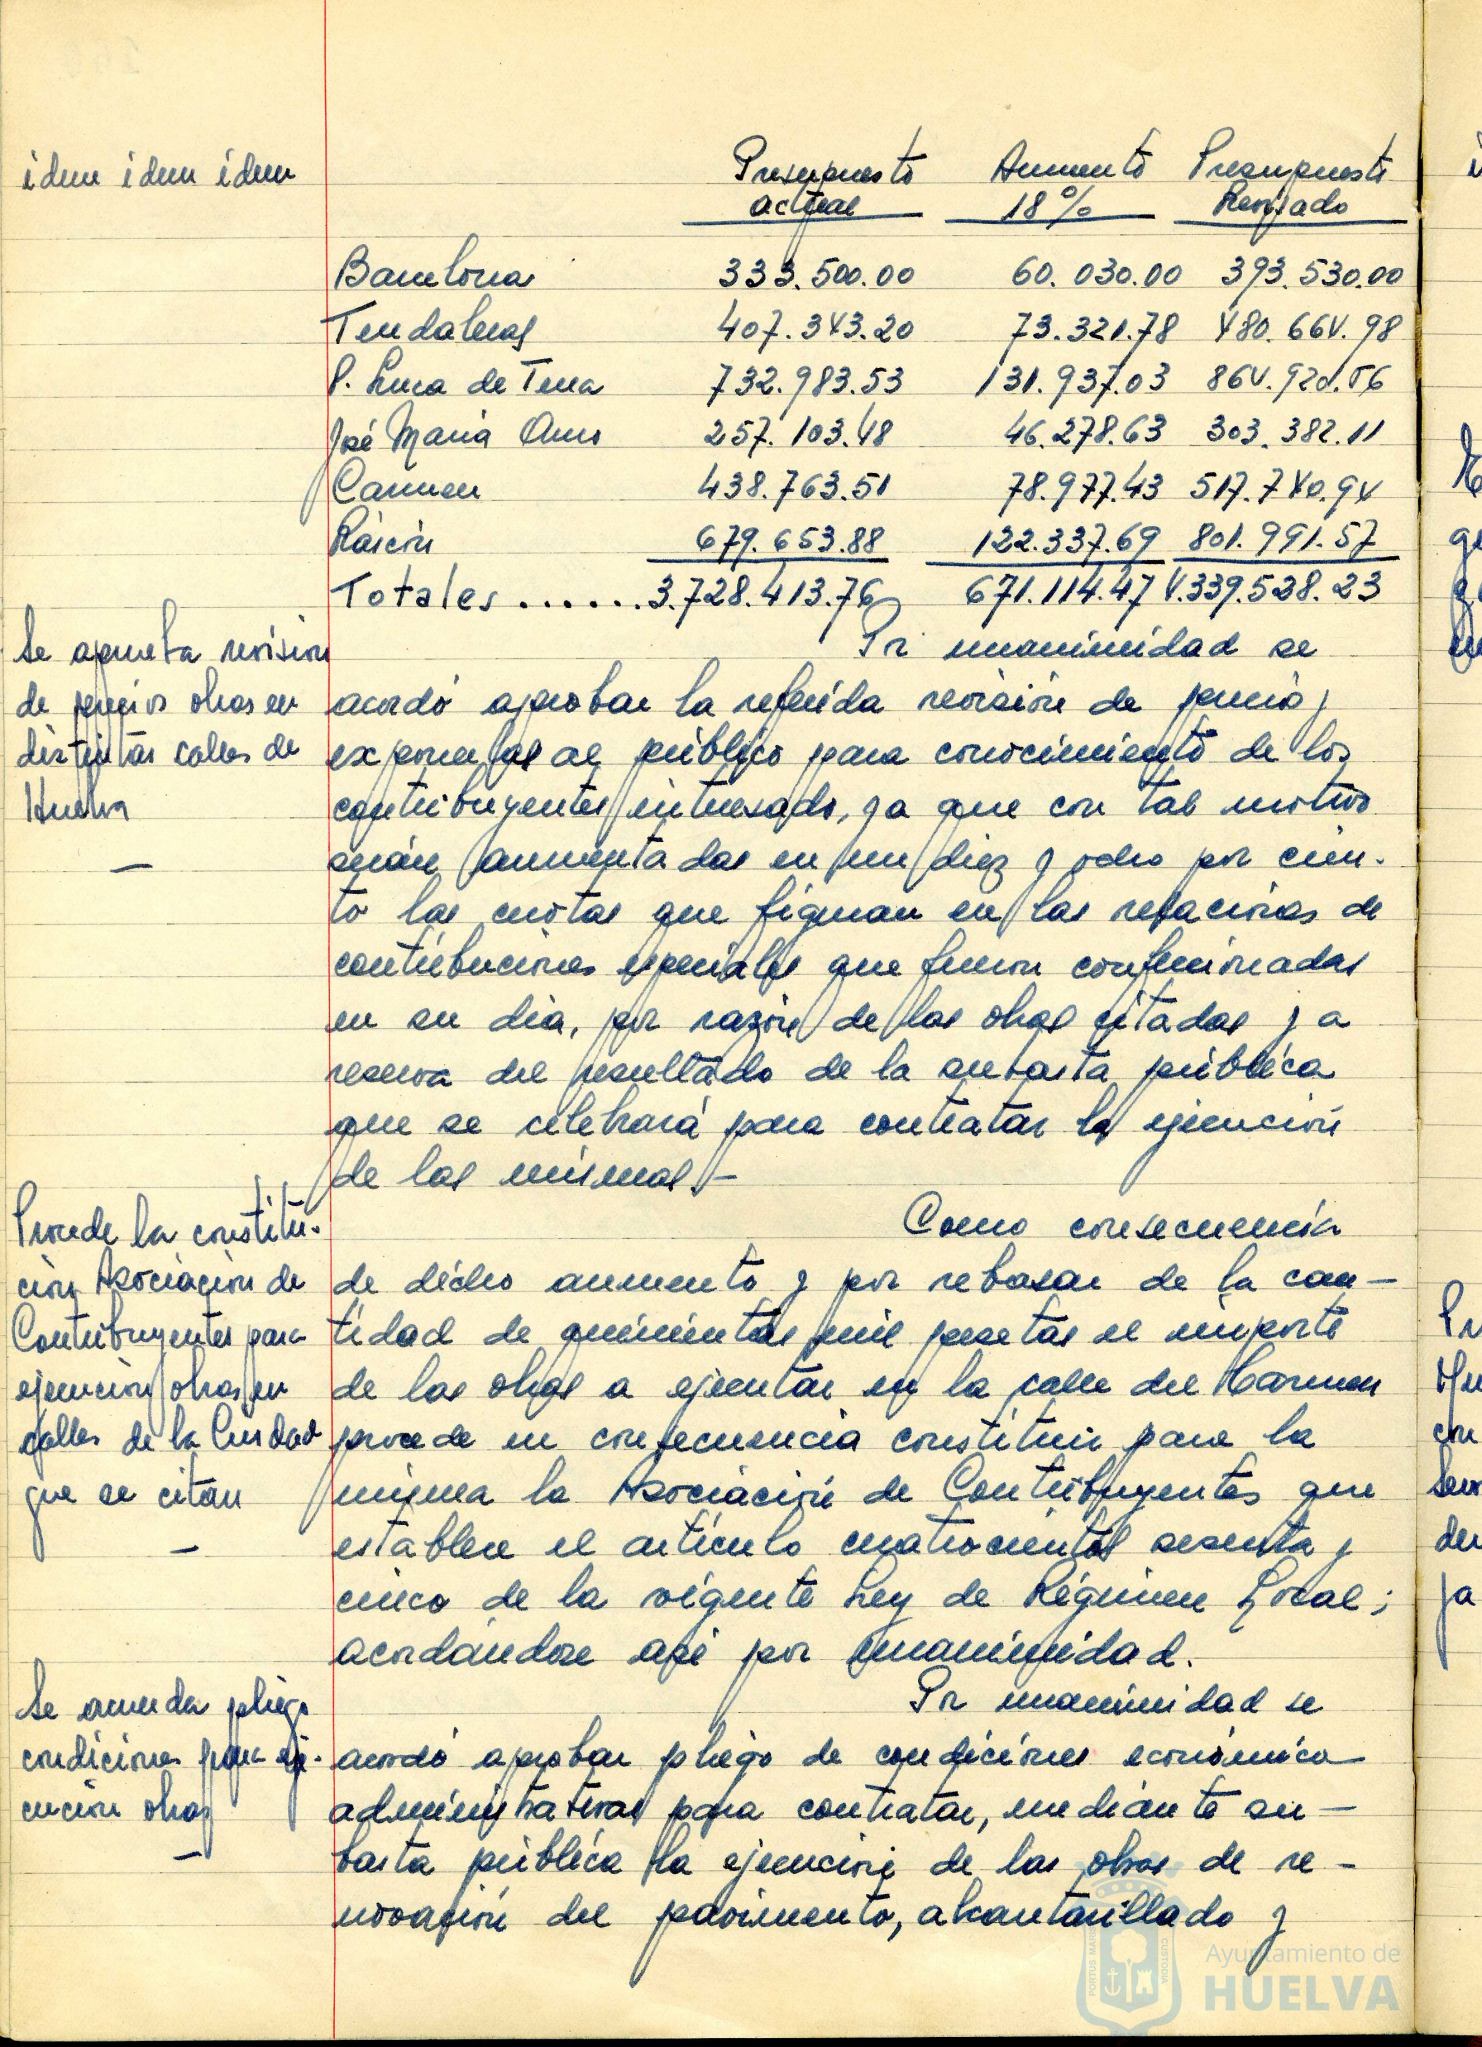 idem idem idem
Presupuesto actual Aumento 18% Presupuesto Revisado
Barcelona 333.500.00 60.030.00 393.530.00
Tendaleras 407.343.20 73.321.78 480.664.98
P. Luca de Tena 732.983.53 131.937.03 864.920.56
José María Amo 257.103.48 46.278.63 303.382.11
Carmen 438.763.51 78.977.43 517.740.94
Rascón 679.653.88 122.337.69 801.991.57
Totales ......3.728.413.76 671.114.47 4.339.528.23
Se aprueba revision
de precios obras en
distintas calles de
Huelva
—
Por unanimidad se
acordó aprobar la referida revisión de precios y
exponerlas al público para conocimiento de los
contribuyentes interesados, ya que con tal motivo
serán aumentadas en un diez y ocho por cien-
to las cuotas que figuran en las relaciones de
contribuciones especiales que fueron confeccionadas
en su dia, por razón de las obras citadas y a
reserva del resultado de la subasta pública
que se celebrará para contratar la ejecución
de las mismas.—
Procede la constitu-
ción Asociación de
Contribuyentes para
ejecución obras en
calles de la Ciudad
que se citan
—
Como consecuencia
de dicho aumento y por rebasar de la can—
tidad de quinientas mil pesetas el importe
de las obras a ejecutar en la calle del Carmen
procede en consecuencia constituir para la
misma la Asociación de Contribuyentes que
establece el artículo cuatrocientos sesenta y
cinco de la vigente Ley de Régimen Local;
acordándose asi por unanimidad.
Se acuerda pliego
condiciones para eje-
cución obras
—
Por unanimidad se
acordó aprobar pliego de condiciones económico
administrativas para contratar, mediante su—
basta pública la ejecución de las obras de re—
novación del pavimento, alcantarillado y
Ayuntamiento de
HUELVA